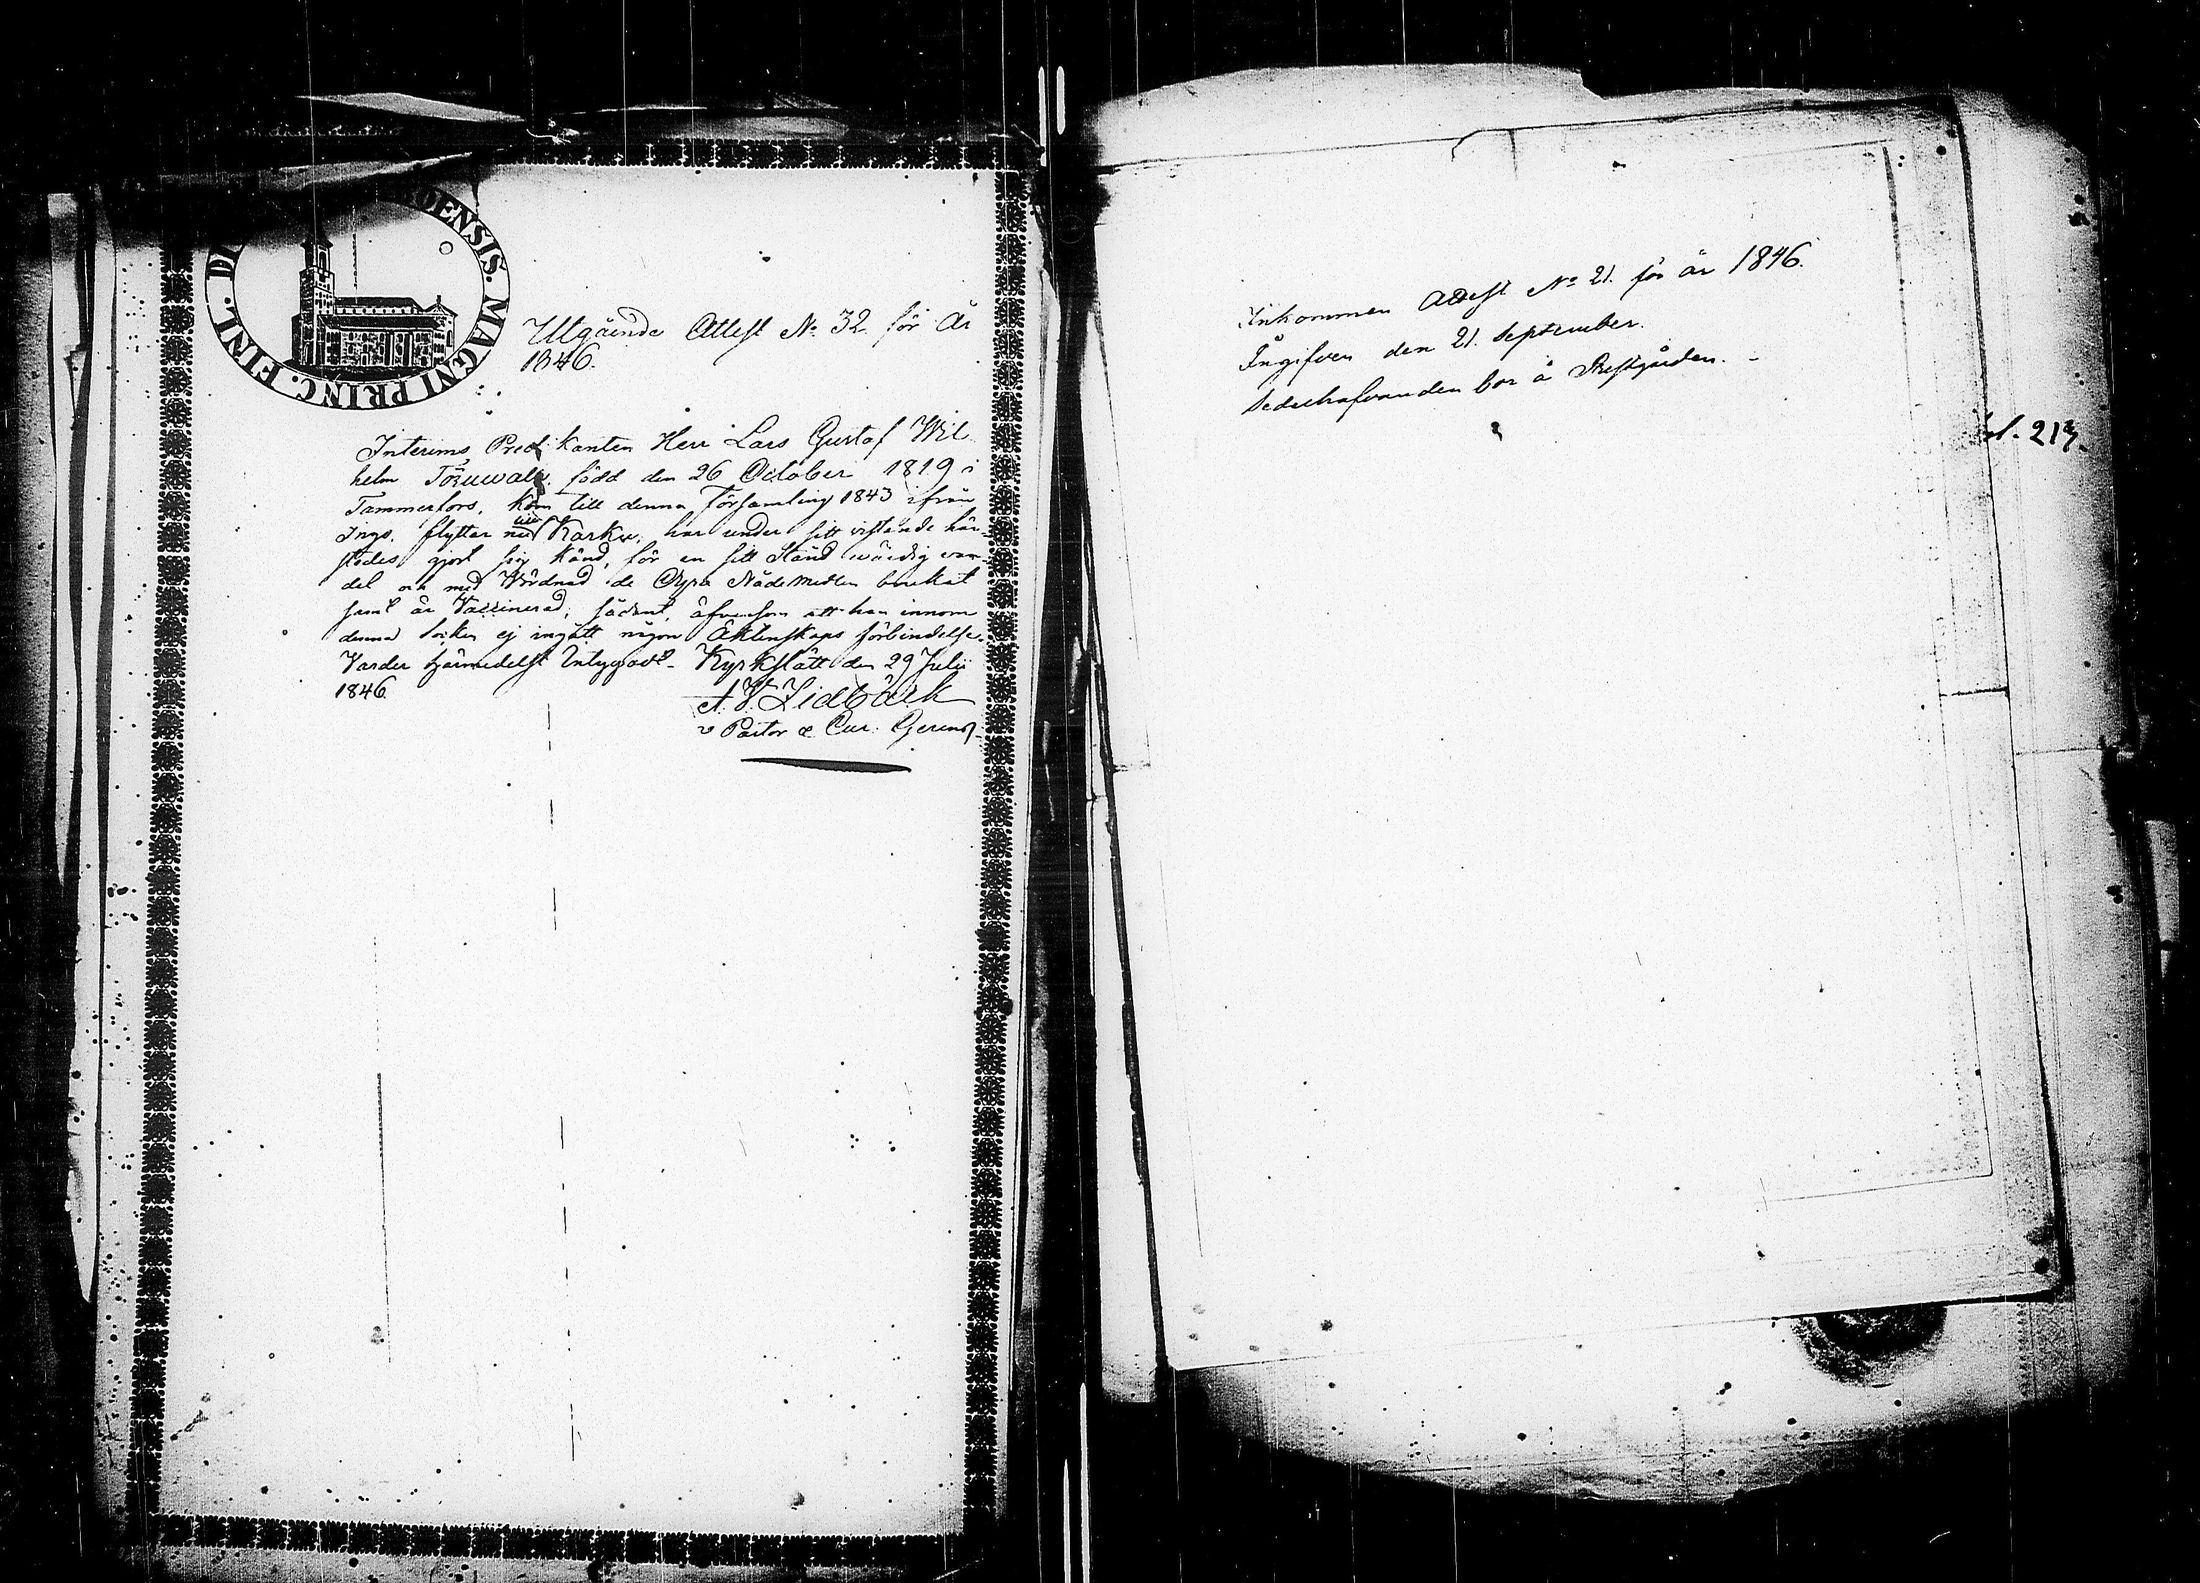 OENSIS. MAGNI PRINC. FINL. DI
Utgående Attest No 32 för År
1846.
Interims Predikanten Herr Lars Gustaf Wil
helm född den 26 October 1819 i
Tammerfors, kom till denna Församling 1843 ifrån
Ingo, flyttar nu till Karku, har under sitt vistande här-
städes gjort sig känd, för en sitt Stånd wärdig van-
del och med Wördnad de Dyra Nådemedlen brukat
samt är Vaccinerad; sådant, äfvensom att han innom
denna Socken ej ingått någon Äktenskaps förbindelse.
Varder härmedelst Intygadt. Kyrkslätt den 29 Julii
1846
A. V. Lidbäck
v Pastor & Cur. Gerens.
Inkommen Attest No 21. för år 1846.
Ingifven den 21. September.
Sedelhafvanden bor å Prestgården. -